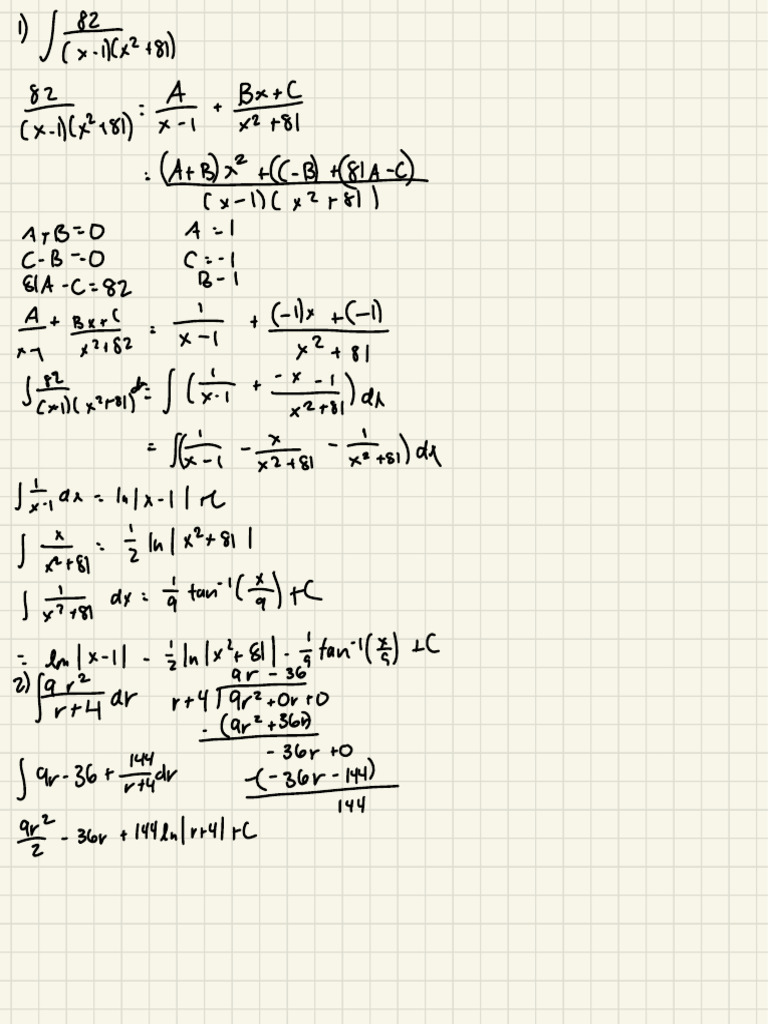 1) ∫ 82/((x-1)(x²+81))
82/((x-1)(x²+81)) = A/(x-1) + (Bx+C)/(x²+81)
= ((A+B)x² + ((C-B) + (81A-C))/((x-1)(x²+81))
A+B=0 A=1
C-B=0 C=-1
81A-C=82 B-1
A/(x-1) + (Bx+C)/(x²+82) = 1/(x-1) + ((-1)x+(-1))/(x²+81)
∫ 82/((x-1)(x²+81)) dx = ∫ (1/(x-1) + (-x-1)/(x²+81)) dx
= ∫ (1/(x-1) - x/(x²+81) - 1/(x²+81)) dx
∫ 1/(x-1) dx = ln|x-1| +C
∫ x/(x²+81) = 1/2 ln|x²+81|
∫ 1/(x²+81) dx = 1/9 tan⁻¹(x/9) + C
= ln|x-1| - 1/2 ln|x²+81| - 1/9 tan⁻¹(x/9) + C
2) ∫ 9r²/(r+4) dr
9r - 36
r+4 ) 9r²+0r+0
- (9r²+36r)
-36r+0
-(-36r-144)
144
∫ 9r-36+144/(r+4) dr
9r²/2 - 36r + 144 ln|r+4| + C